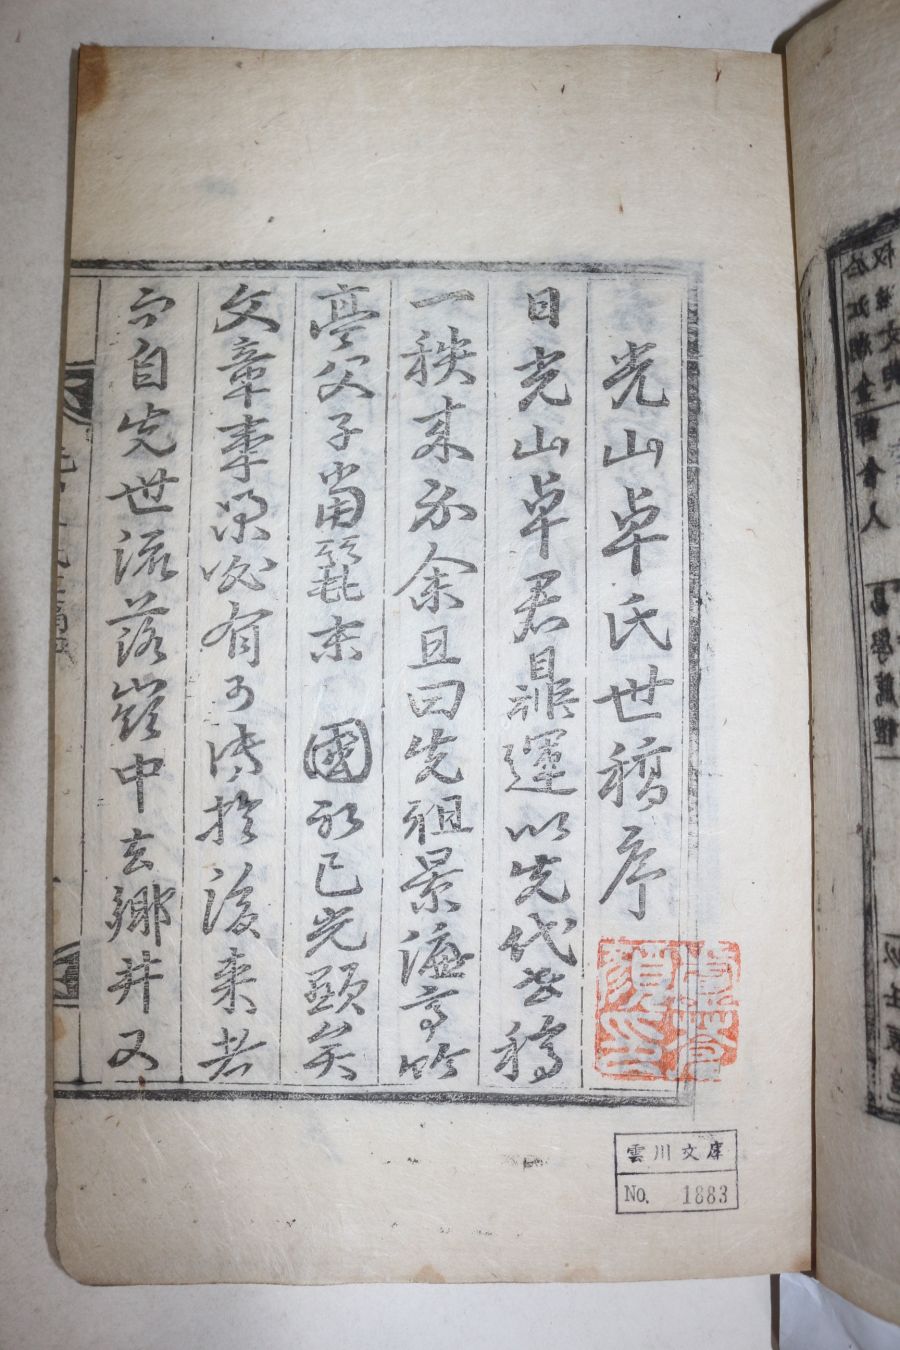 光山卓氏世稿序
日光山卓君運以先代世稿
一秩来示余且曰先祖景濂亭竹
亭父子當麗末 國初已光顯矣
文章事業必有可傳於後来者
而自先世流落嶺中去鄉井又
雲川文庫
No. 1883